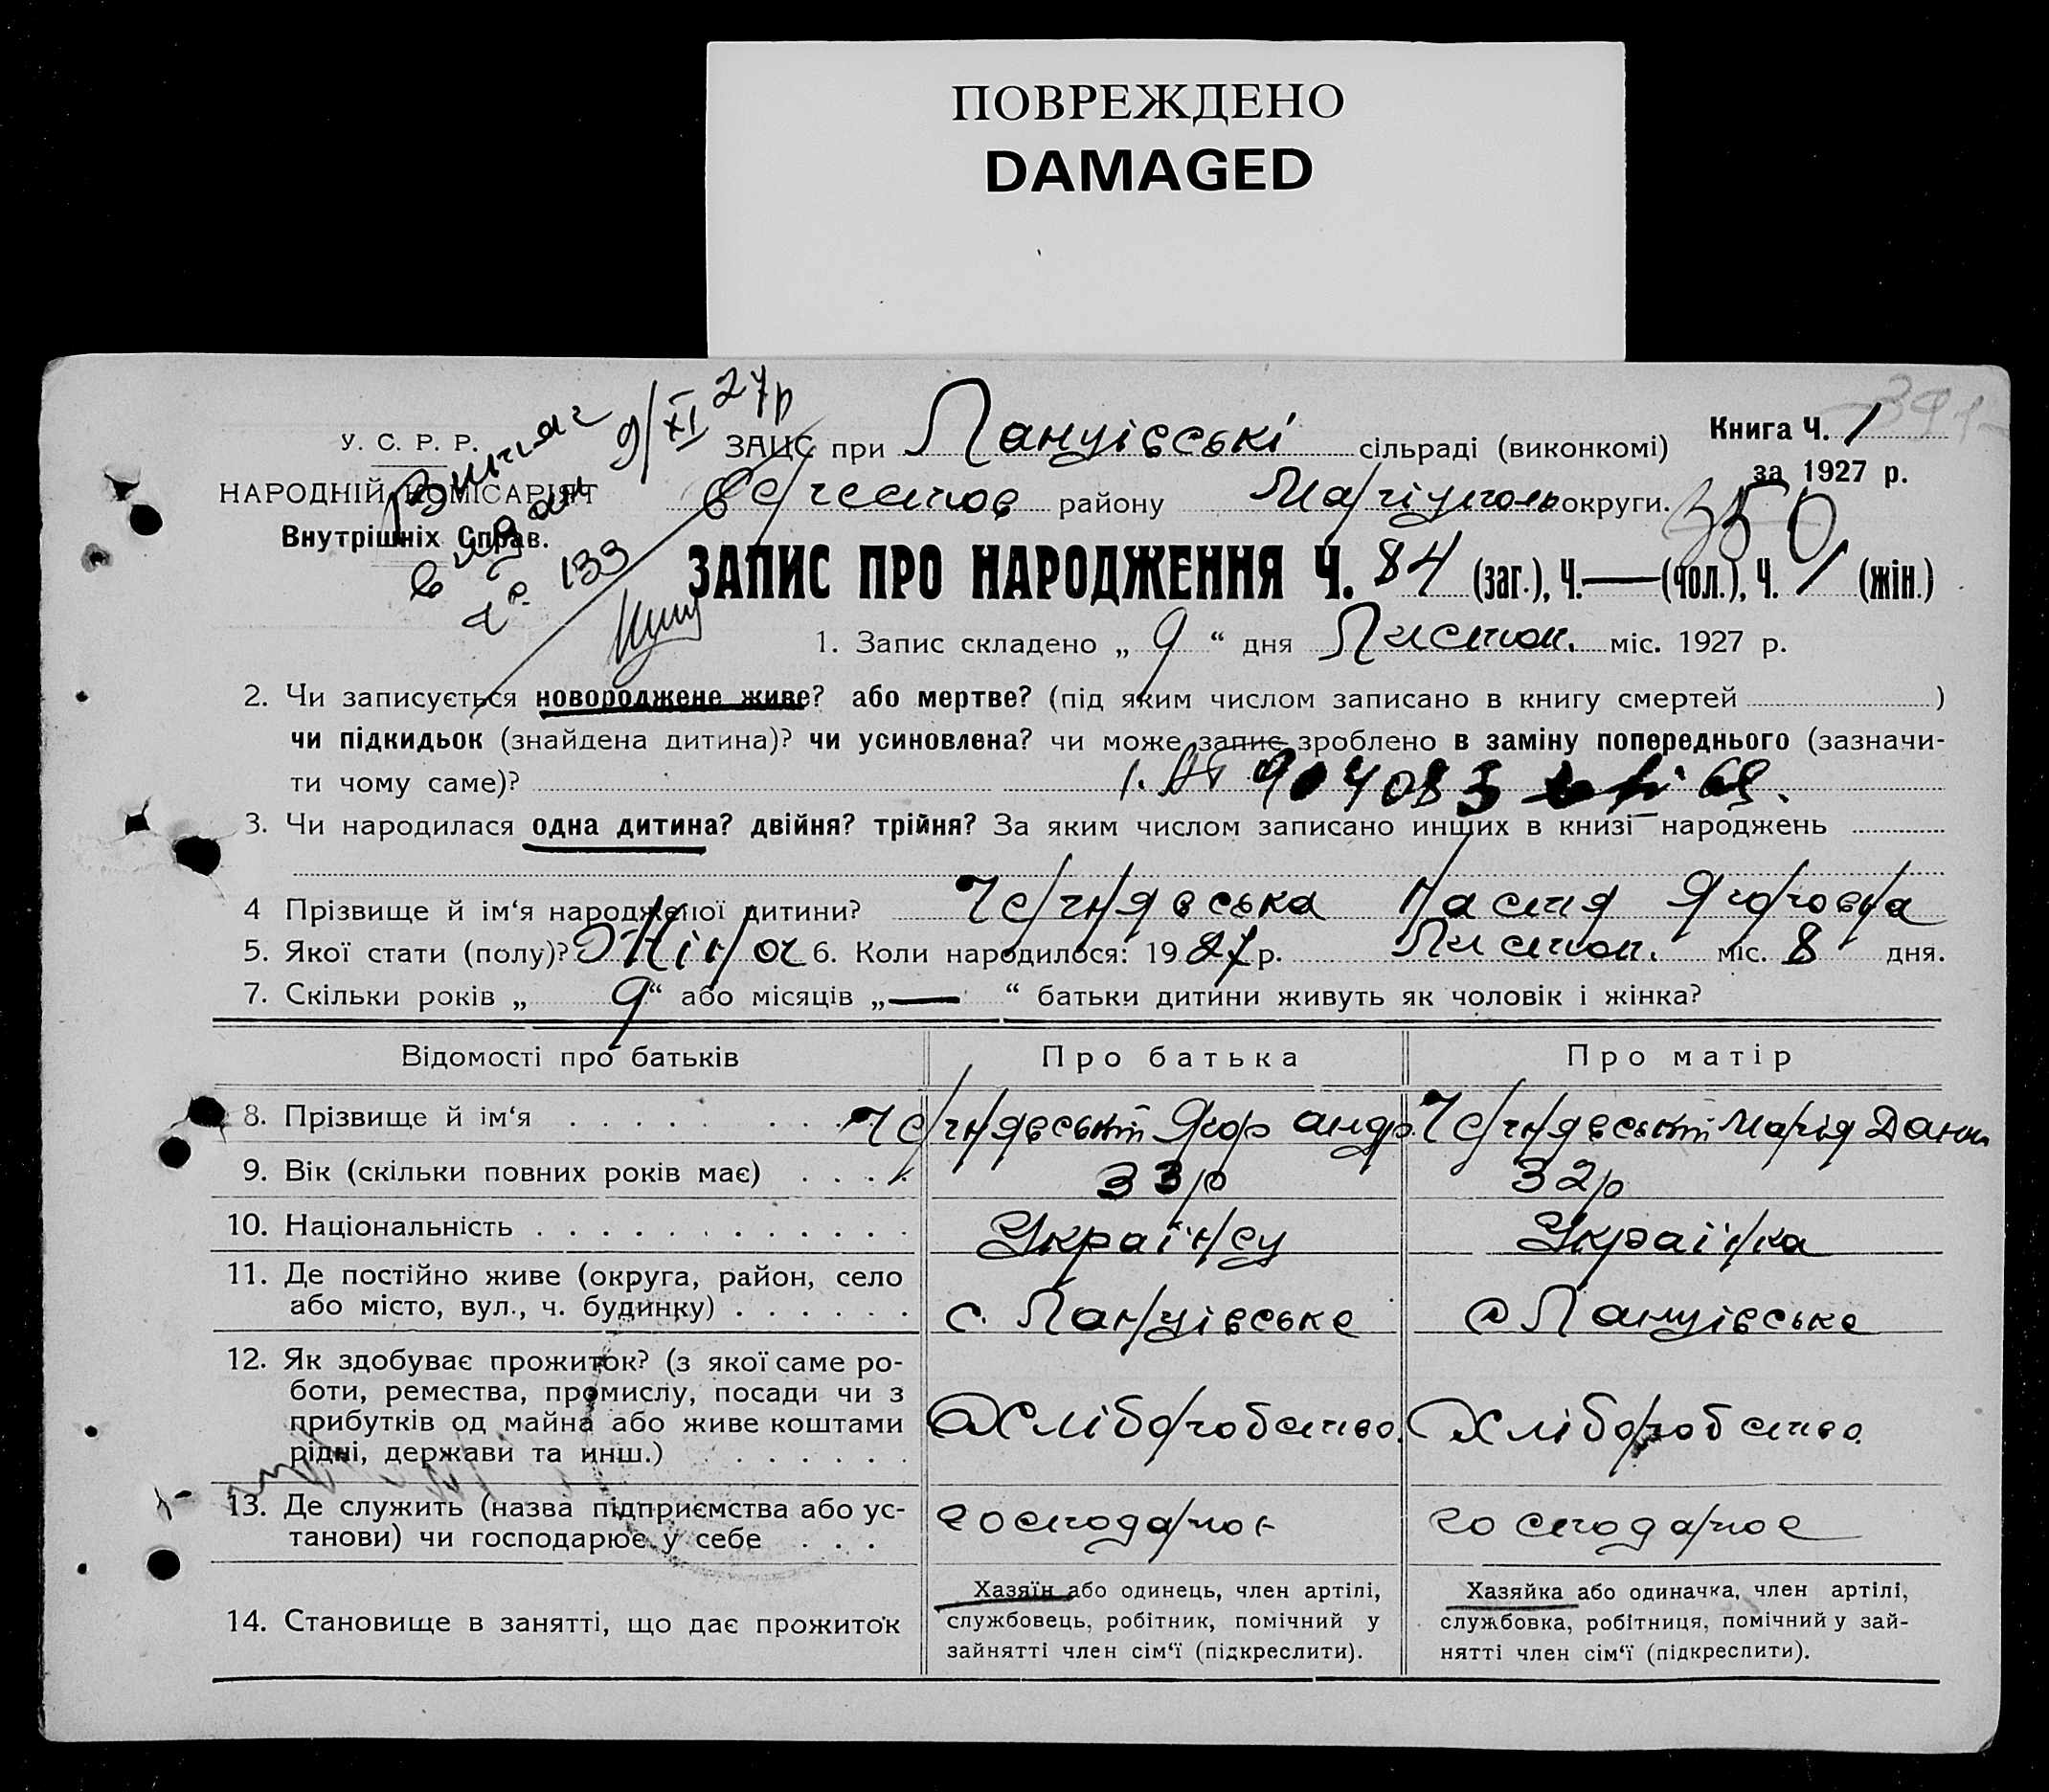 ПОВРЕЖДЕНО
DAMAGED
Витяг 9/XI 27р
видан
№ 133
У. С. Р. Р.
НАРОДНІЙ КОМІСАРІЯТ
Внутрішніх Справ.
ЗАЦС при Мануівські сільраді (виконкомі)
району Маріуполь округи.
Книга Ч. 1
за 1927 р.
350
ЗАПИС ПРО НАРОДЖЕННЯ Ч. 84 (заг.), Ч. — (чол.), Ч. 1 (жін.)
1. Запис складено „ 9 “ дня Листоп. міс. 1927 р.
2. Чи записується новороджене живе? або мертве? (під яким числом записано в книгу смертей )
чи підкидьок (знайдена дитина)? чи усиновлена? чи може запис зроблено в заміну попереднього (зазначи-
ти чому саме)?
3. Чи народилася одна дитина? двійня? трійня? За яким числом записано инших в книзі народжень
4 Прізвище й ім‘я народженої дитини? Чернявська Настя Ягоровна
5. Якої стати (полу)? Жіноч 6. Коли народилося: 1927 р. Листоп. міс. 8 дня.
7. Скільки років „ 9 “ або місяців „ — “ батьки дитини живуть як чоловік і жінка?
Відомості про батьків Про батька Про матір
8. Прізвище й ім‘я . . . . . . . Чернявський Ягор Андр. Чернявська Марія Дани
9. Вік (скільки повних років має) . . . . 33р 32р
10. Національність . . . . . . . . . . . . Українец Українка
11. Де постійно живе (округа, район, село
або місто, вул., ч. будинку) . . . . . . с. Мануівське с Мануівське
12. Як здобуває прожиток? (з якої саме ро-
боти, ремества, промислу, посади чи з
прибутків од майна або живе коштами
рідні, держави та инш.) . . . . . . . Хліборобство. Хліборобство.
13. Де служить (назва підприємства або ус-
танови) чи господарює у себе . . . господарює господарює
14. Становище в занятті, що дає прожиток
Хазяїн або одинець, член артілі,
службовець, робітник, помічний у
зайнятті член сім‘ї (підкреслити).
Хазяйка або одиначка, член артілі,
службовка, робітниця, помічний у зай-
нятті член сім‘ї (підкреслити).